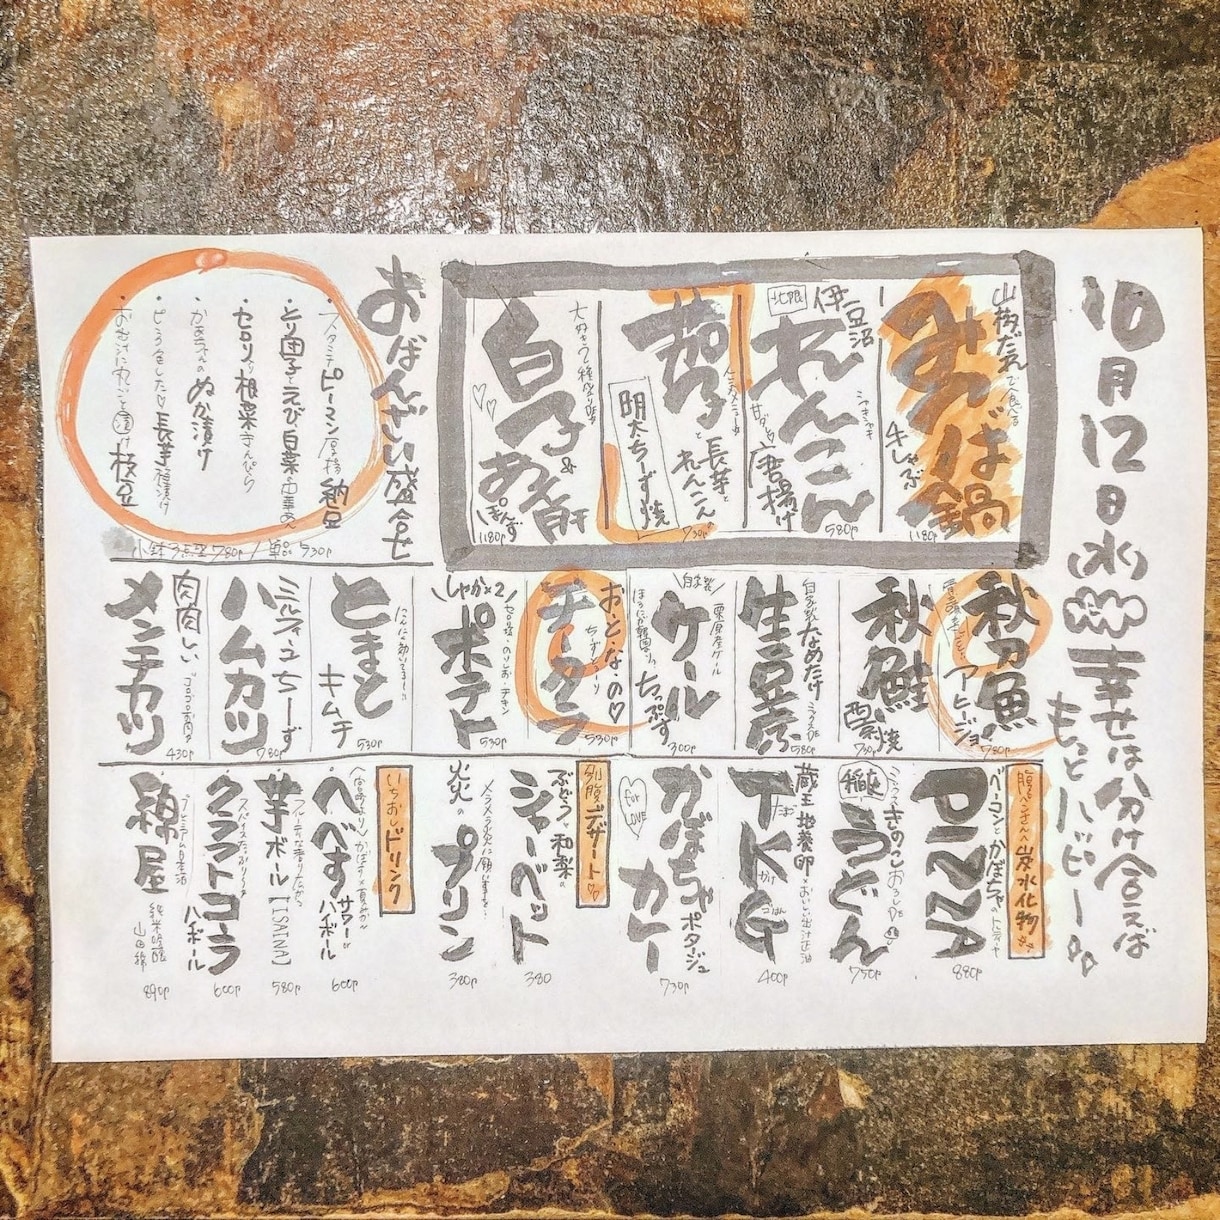 10月12日(水)
幸せは分け合えば
もっとハッピー
で食べる
みつば鍋
牛しゃぶ
1180P
伊豆沼
れんこん
シャキシャキ
唐揚げ
580P
茄子と長芋とれんこん
明太ちーず焼
730P
白子&あん肝
ぽんず
1180P
おばんざい盛合せ
・スタミナピーマン厚揚納豆
・とり団子とえび白菜の中華あん
・セロリと根菜きんぴら
・かあちゃんのぬか漬け
・長芋梅漬け
・枝豆
小鉢3点盛780P/単品330P
秋刀魚
アヒージョ
780P
秋鮭
西京焼
730P
自家製なめたけ
生豆腐
580P
自家製
栗原産ケール
ケール
ちっぷす
300P
お・と・な・の♡
チータラ
530P
しゃか×2
ポテト
530P
とまと
キムチ
530P
ミルフィーユちーず
ハムカツ
780P
肉肉しい
メンチカツ
430P
炭水化物
ベーコンとかぼちゃの
PIZZA
880P
きのこおろしDe
稲庭
うどん
750P
蔵王地養卵×おいしい出汁正油
TKG
たまご
かけ
ごはん
400P
for LOVE
かぼちゃポタージュ
カレー
730P
別腹デザート♡
ぶどうと和梨の
シャーベット
380
炎のプリン
380P
いちおしドリンク
へべすサワーorハイボール
600P
フルーティな香りだから
芋ボール【ISAINA】
580P
スパイスたっぷり
クラフトコーラ
ハイボール
600P
綿屋
純米吟醸
山田錦
890P